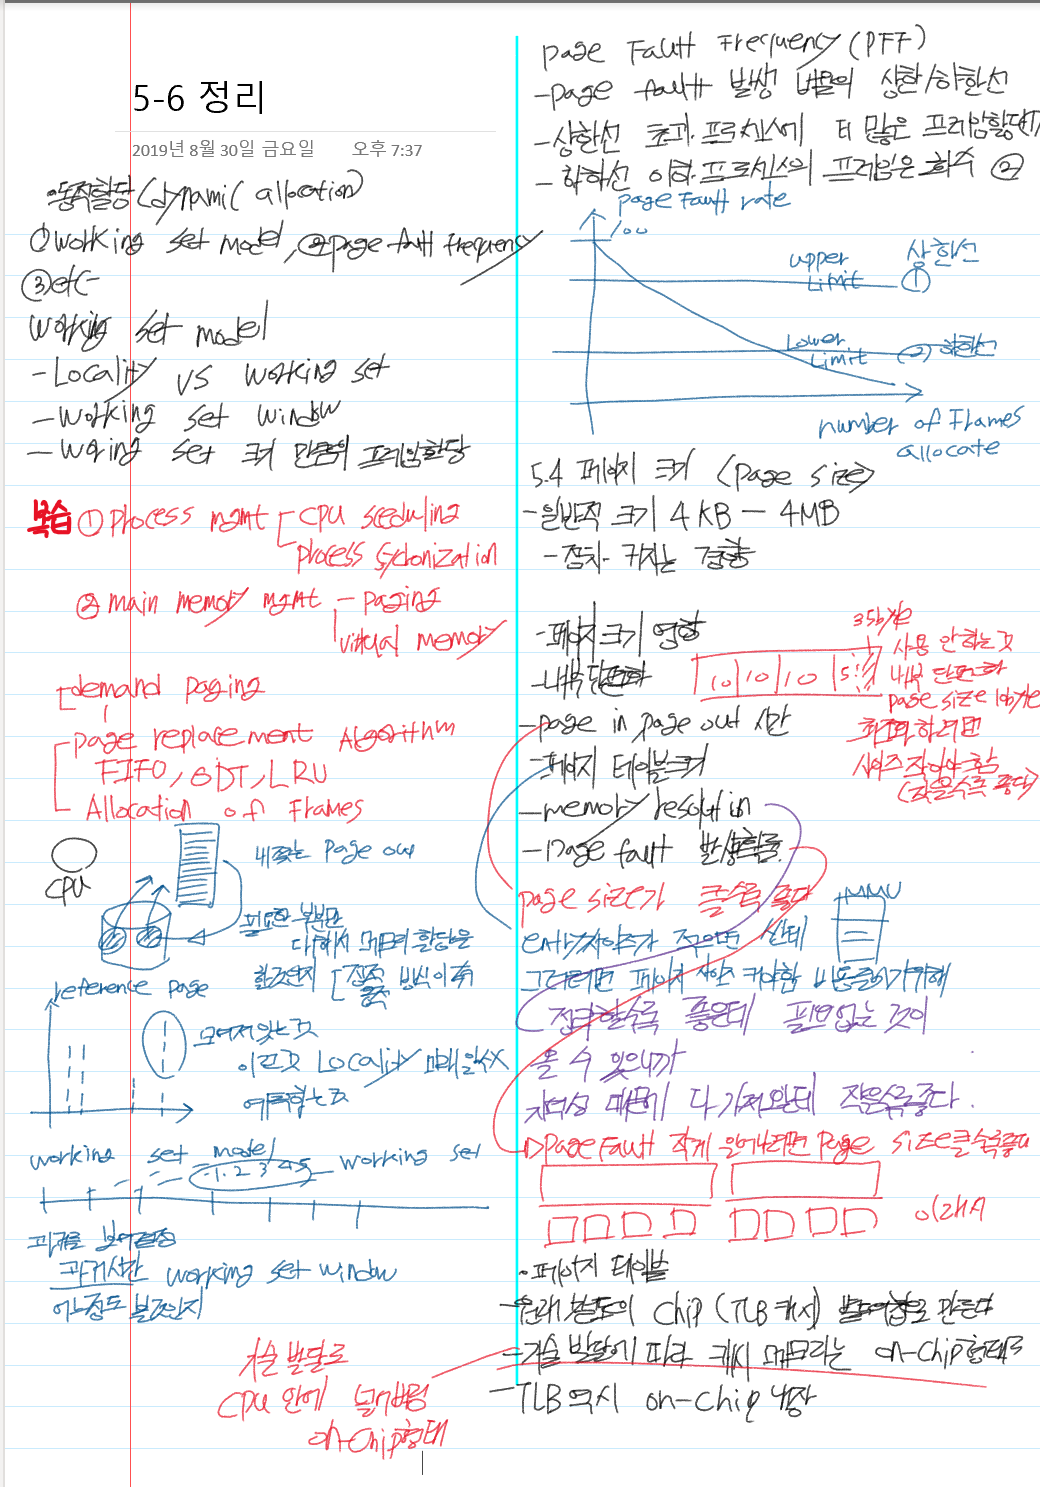 5-6 정리
2019년 8월 30일 금요일 오후 7:37
·동적할당 (dynamic allocation)
① working set model, ② page fault frequency
③ etc
working set model
- Locality vs working set
- working set window
- woring set 크기 만큼의 프레임 할당
복습 ① process mgmt - CPU sceduling
process sychonization
② main memory mgmt - paging
virtual memory
demand paging
page replacement Algorithm
FIFO, OPT, LRU
Allocation of Frames
CPU
내쫓는 page out
필요한 부분만
다해서 메모리 할당은
할것인지
방식이 즉
reference page
모여져 있는것
이런것 Locality
working set model
1 2 3 4 5 working set
과거를 보여결정
과거시간 working set window
어느정도 볼것인지
기술 발달로
CPU 안에 넣어버림
on-chip 형태
page Fault Frequency (PFF)
- page fault 발생 비율의 상한/하한선
- 상한선 초과 프로세스에 더 많은 프레임할당 ①
- 하한선 이하 프로세스의 프레임은 회수 ②
page Fault rate
100
upper Limit ① 상한선
Lower Limit (2) 하한선
number of Frames
allocate
5.4 페이지 크기 (page size)
- 일반적 크기 4KB - 4MB
- 점차 커지는 경향
- 페이지 크기 영향
- 내부단편화
35byte
10 10 10 5
사용 안하는것
내부 단편화
page size 10byte
- page in, page out 시간
최고화 하려면
- 페이지 테이블크기
사이즈 작아야 함
(작을수록 좋다)
- memory resolution
- page fault 발생확률
page size가 클수록 좋다
MMU
entry사이즈가 적으면 싼데
그러려면 페이지 사이즈 커야함 비용줄이기위해
정확할수록 좋은데 필요없는 것이
올 수 있으니까
지역성 때문에 다 가져와야 작을수록 좋다.
page Fault 작게 일어나려면 page size 클수록 좋다
이래서
· 페이지 테이블
- 원래 별도의 chip (TLB 캐시) 만든다
- 기술 발달에 따라 캐시 메모리는 on-chip 형태로
- TLB 역시 on-chip 내장